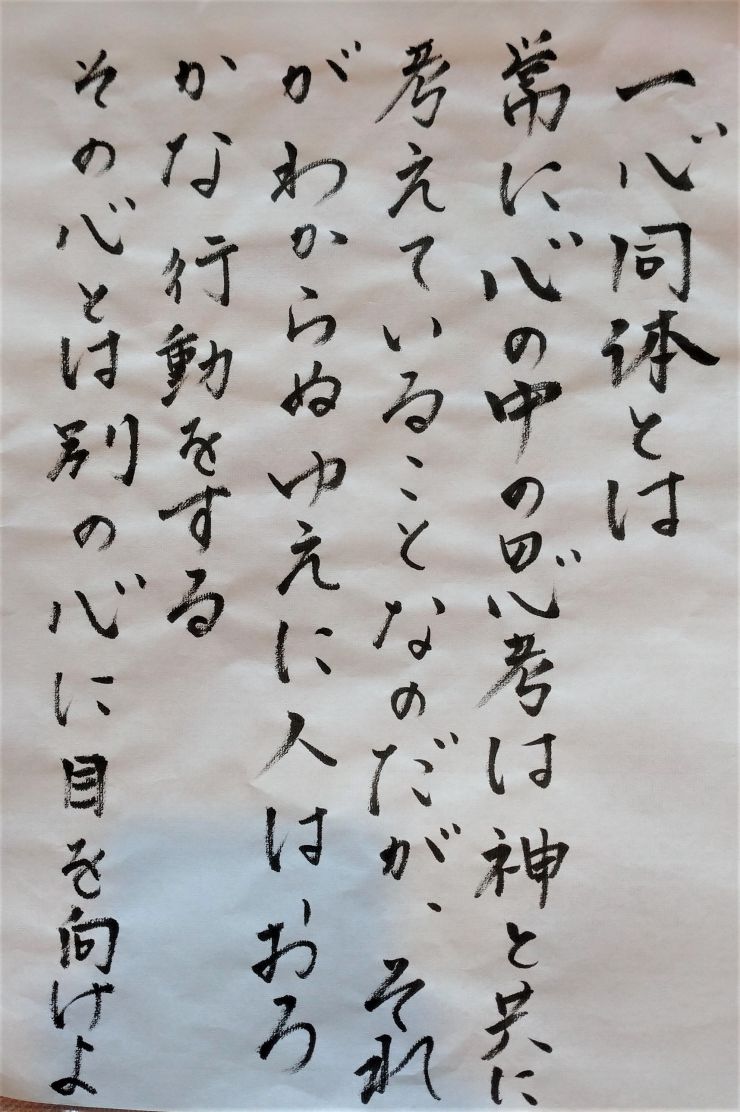 一心同体とは
常に心の中の思考は神と共に
考えていることなのだが、それ
がわからぬゆえに人は、おろ
かな行動をする
その心とは別の心に目を向けよ